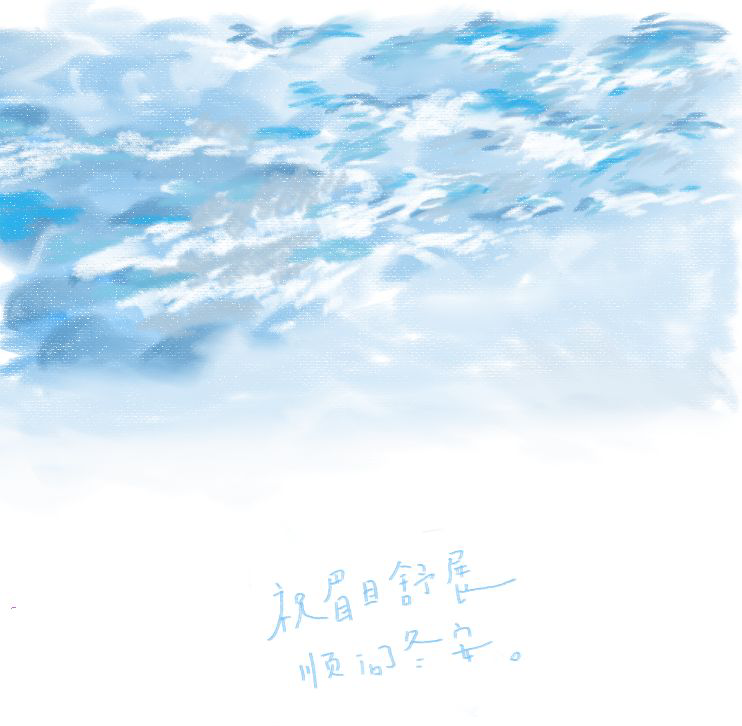 祝眉目舒展
顺问冬安。